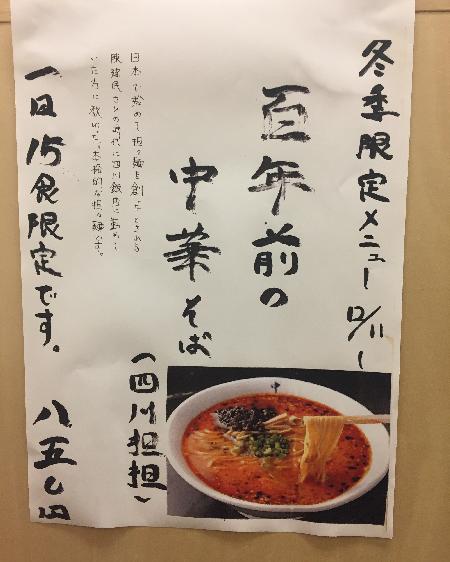 冬季限定メニュー 12/11〜
百年前の
中華そば
(四川担担)
日本で始めて担々麺を創ったとされる
陳建民さんの時代に四川飯店に勤めて
いた方に教わった、本格的な担々麺です。
一日15食限定です。 八五〇円
中